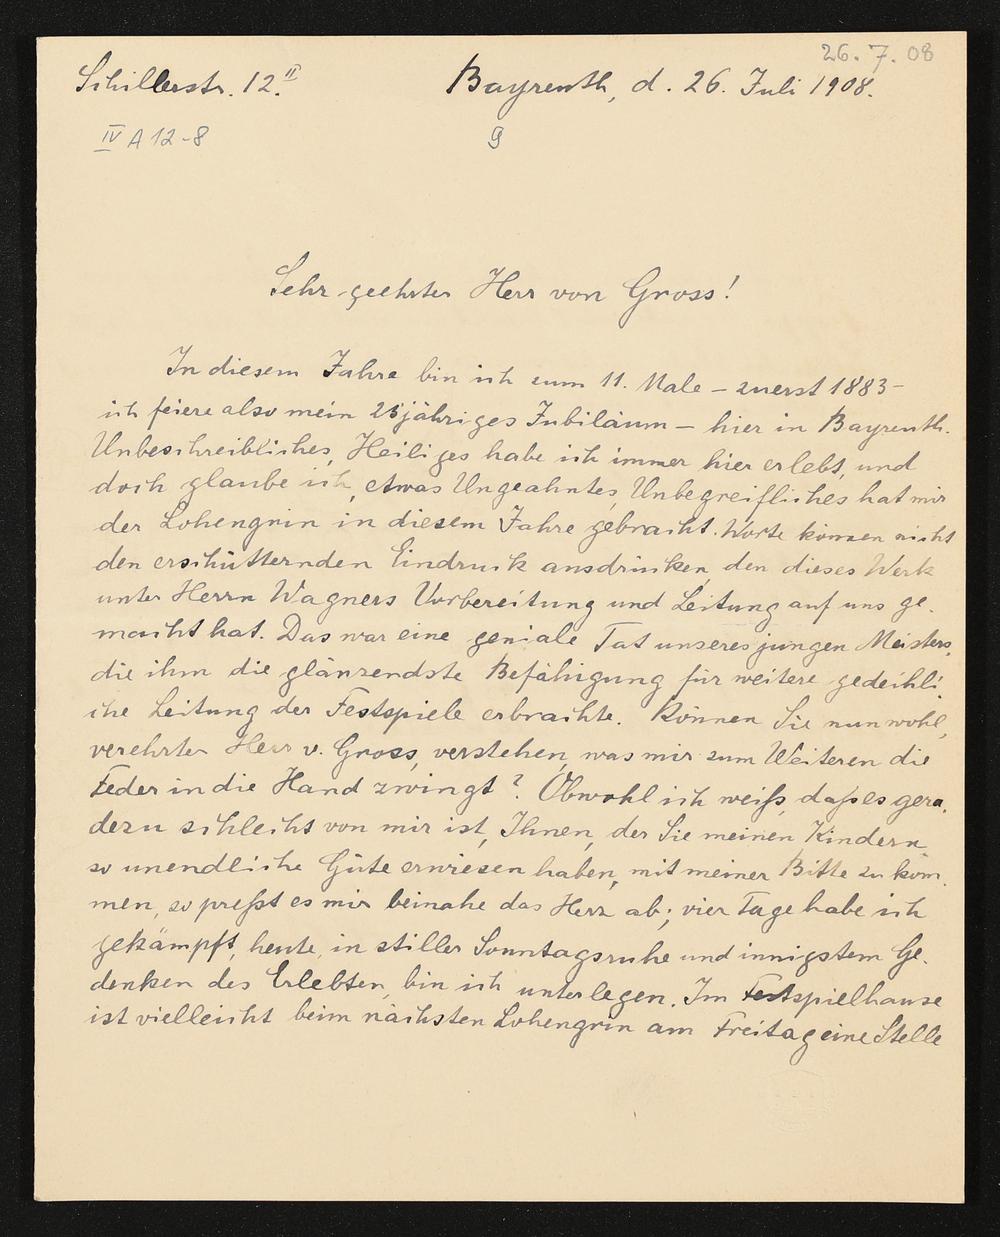 26. 7. 08
Schillerstr. 12.II
Bayreuth, d. 26. Juli 1908.
IV A 12-8
9
Sehr geehrter Herr von Gross!
In diesem Jahre bin ich zum 11. Male – zuerst 1883 –
ich feiere also mein 25jähriges Jubiläum – hier in Bayreuth.
Unbeschreibliches, Heiliges habe ich immer hier erlebt, und
doch glaube ich, etwas Ungeahntes, Unbegreifliches hat mir
der Lohengrin in diesem Jahre gebracht. Worte können nicht
den erschütternden Eindruck ausdrücken, den dieses Werk
unter Herrn Wagners Vorbereitung und Leitung auf uns ge-
macht hat. Das war eine geniale Tat unseres jungen Meisters,
die ihm die glänzendste Befähigung für weitere gedeihli-
che Leitung der Festspiele erbrachte. Können Sie nun wohl,
verehrter Herr v. Gross, verstehen, was mir zum Weiteren die
Feder in die Hand zwingt? Obwohl ich weiß, daß es gera-
dezu schlecht von mir ist, Ihnen, der Sie meinen Kindern
so unendliche Güte erwiesen haben, mit meiner Bitte zu kom-
men, so preßt es mir beinahe das Herz ab; vier Tage habe ich
gekämpft, heute, in stiller Sonntagsruhe und innigstem Ge-
denken des Erlebten, bin ich unterlegen. Im Festspielhause
ist vielleicht beim nächsten Lohengrin am Freitag eine Stelle